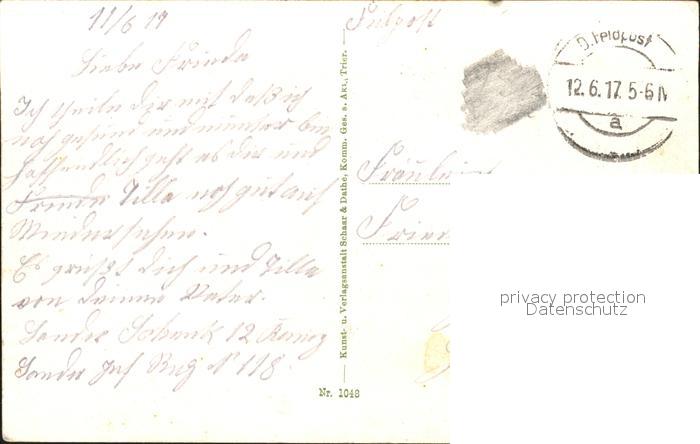 11/6 17
Liebe Frieda
Ich theile dir mit daß ich
noch gesund und munter bin
hoffendlich geht es dir und
Frieda Tilla noch gut auf
Wiedersehen.
Es grüßt dich und Tilla
von deinem Vater.
Sender Schenk 12
Inf Reg N 118.
Kunst- u. Verlagsanstalt Schaar & Dathe, Komm. Ges. a. Akt., Trier.
Nr. 1048
Feldpost
D. Feldpost
12.6.17.5-6 N
a
Fräulein
privacy protection
Datenschutz